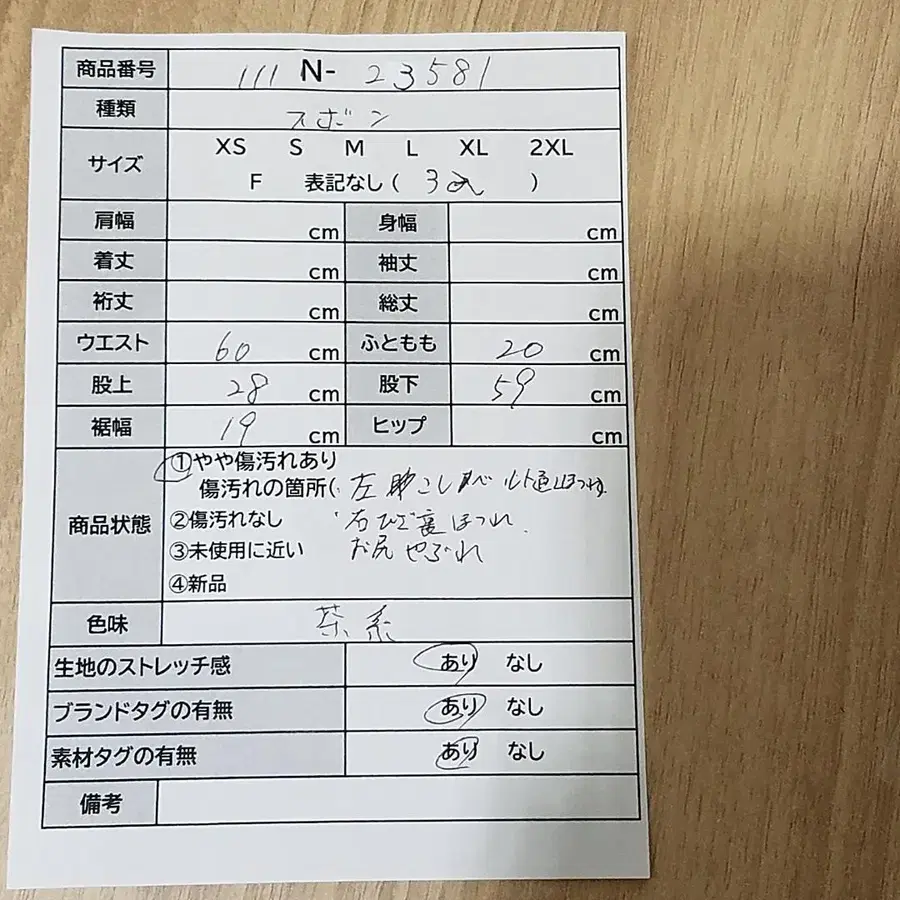 商品番号 111 N- 23581
種類 ズボン
サイズ XS S M L XL 2XL
F 表記なし ( 3 )
肩幅 cm 身幅 cm
着丈 cm 袖丈 cm
裄丈 cm 総丈 cm
ウエスト 60 cm ふともも 20 cm
股上 28 cm 股下 59 cm
裾幅 19 cm ヒップ cm
商品状態 ①やや傷汚れあり
傷汚れの箇所( 左 こし ベルト通しほつれ
②傷汚れなし 右ひざ裏ほつれ
③未使用に近い お尻やぶれ
④新品
色味 茶系
生地のストレッチ感 あり なし
ブランドタグの有無 あり なし
素材タグの有無 あり なし
備考